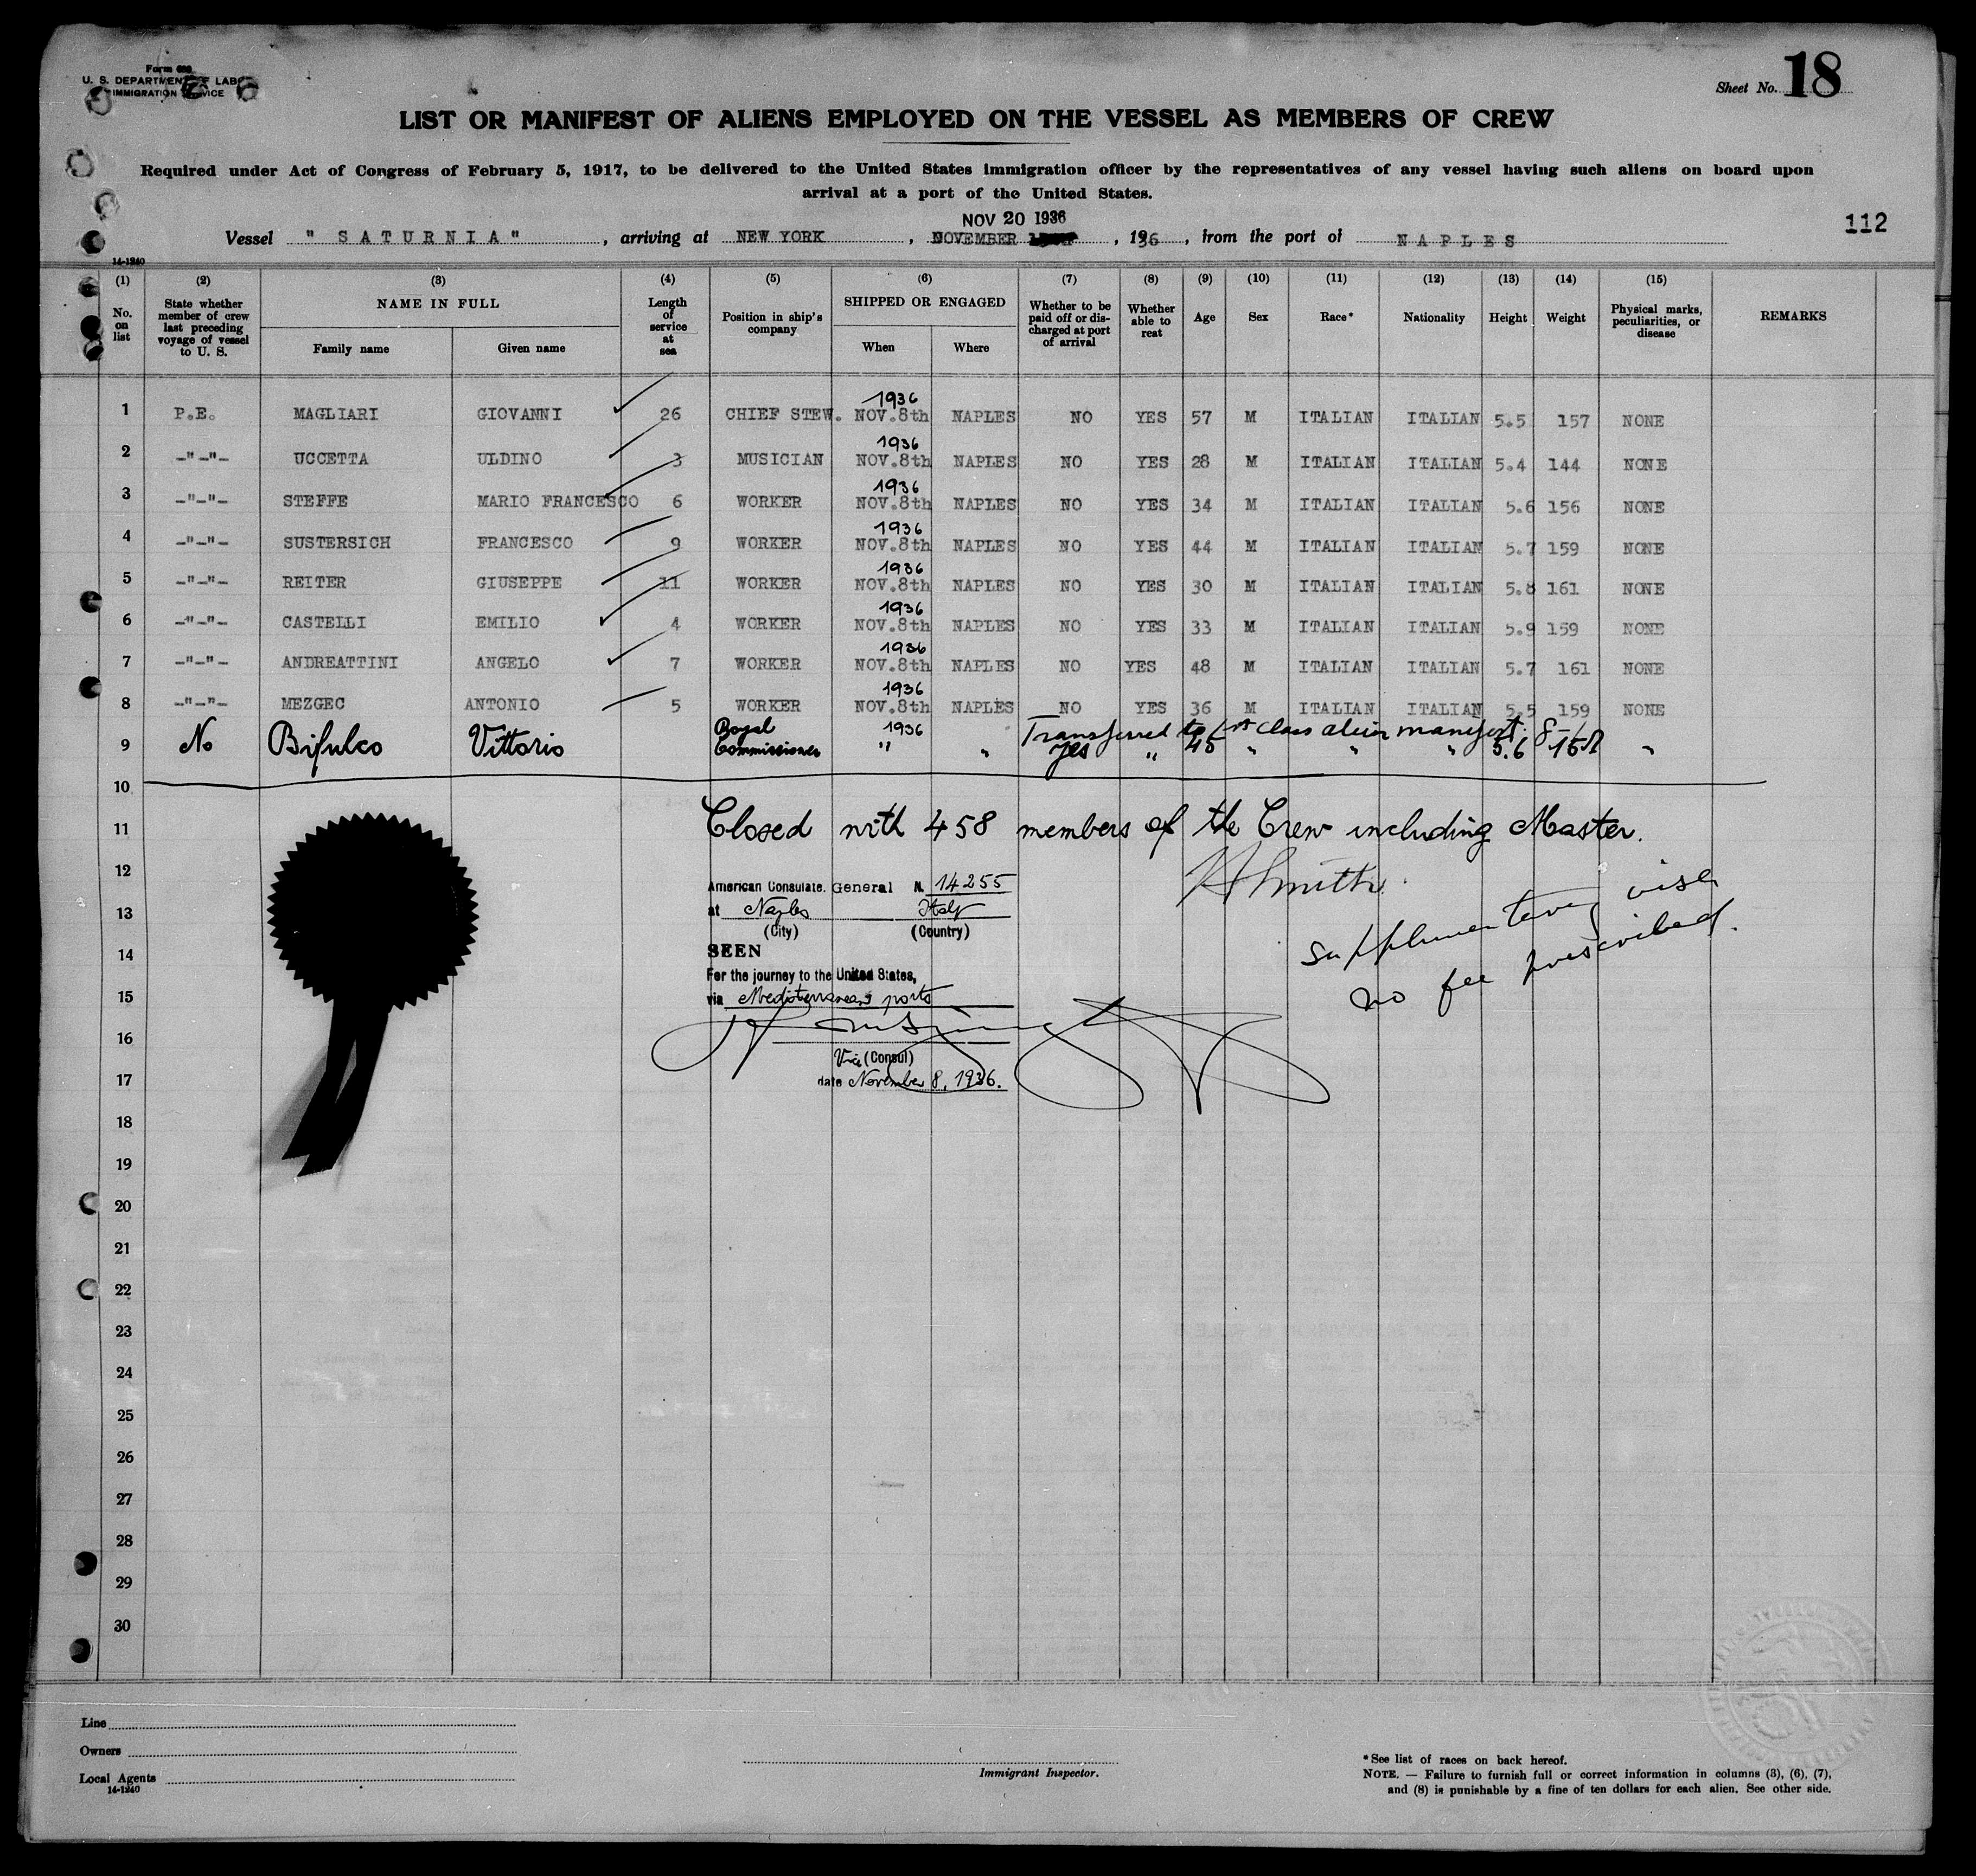 Form 689
U. S. DEPARTMENT OF LABOR
IMMIGRATION SERVICE
Sheet No. 18
LIST OR MANIFEST OF ALIENS EMPLOYED ON THE VESSEL AS MEMBERS OF CREW
Required under Act of Congress of February 5, 1917, to be delivered to the United States immigration officer by the representatives of any vessel having such aliens on board upon
arrival at a port of the United States.
NOV 20 1936
112
Vessel " SATURNIA " , arriving at NEW YORK , NOVEMBER , 1936 , from the port of NAPLES
14-1240
(1) (2) (3) (4) (5) (6) (7) (8) (9) (10) (11) (12) (13) (14) (15)
No. on list State whether member of crew last preceding voyage of vessel to U. S. NAME IN FULL Family name Given name Length of service at sea Position in ship's company SHIPPED OR ENGAGED When Where Whether to be paid off or discharged at port of arrival Whether able to reat Age Sex Race* Nationality Height Weight Physical marks, peculiarities, or disease REMARKS
1 P.E. MAGLIARI GIOVANNI 26 CHIEF STEW. 1936 NOV.8th NAPLES NO YES 57 M ITALIAN ITALIAN 5.5 157 NONE
2 -"-"- UCCETTA ULDINO 3 MUSICIAN 1936 NOV.8th NAPLES NO YES 28 M ITALIAN ITALIAN 5.4 144 NONE
3 -"-"- STEFFE MARIO FRANCESCO 6 WORKER 1936 NOV.8th NAPLES NO YES 34 M ITALIAN ITALIAN 5.6 156 NONE
4 -"-"- SUSTERSICH FRANCESCO 9 WORKER 1936 NOV.8th NAPLES NO YES 44 M ITALIAN ITALIAN 5.7 159 NONE
5 -"-"- REITER GIUSEPPE 11 WORKER 1936 NOV.8th NAPLES NO YES 30 M ITALIAN ITALIAN 5.8 161 NONE
6 -"-"- CASTELLI EMILIO 4 WORKER 1936 NOV.8th NAPLES NO YES 33 M ITALIAN ITALIAN 5.9 159 NONE
7 -"-"- ANDREATTINI ANGELO 7 WORKER 1936 NOV.8th NAPLES NO YES 48 M ITALIAN ITALIAN 5.7 161 NONE
8 -"-"- MEZGEC ANTONIO 5 WORKER 1936 NOV.8th NAPLES NO YES 36 M ITALIAN ITALIAN 5.5 159 NONE
Transferred to 1st class alien manifest. 8-1
9 No Bifulco Vittorio Royal Commissioner 1936 " " Yes " 45 " " " 5.6 "
10
11 Closed with 458 members of the Crew including Master.
12
American Consulate. General N. 14255
13 at Naples Italy
(City) (Country)
supplementary visa
no fee prescribed.
14 SEEN
For the journey to the United States,
15 via Mediterranean ports
16
Vice (Consul)
17 date November 8, 1936.
18
19
20
21
22
23
24
25
26
27
28
29
30
Line
Owners
Local Agents
14-1240
Immigrant Inspector.
*See list of races on back hereof.
NOTE. — Failure to furnish full or correct information in columns (3), (6), (7),
and (8) is punishable by a fine of ten dollars for each alien. See other side.